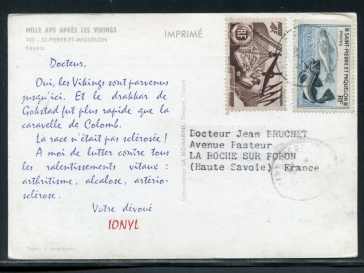 MILLE ANS APRÈS LES VIKINGS
VIII - ST-PIERRE-ET-MIQUELON
IMPRIMÉ
Docteur,
Oui, les Vikings sont parvenus
jusqu'ici. Et le drakkar de
Gokstad fut plus rapide que la
caravelle de Colomb.
La race n'était pas sclérosée!
A moi de lutter contre tous
les ralentissements vitaux:
arthritisme, alcalose, artério-
sclérose.
Votre dévoué
IONYL
RF
SAINT-PIERRE ET MIQUELON
POSTES
RF
Docteur Jean BRUCHET
Avenue Pasteur
LA ROCHE SUR FORON
(Haute Savoie) France